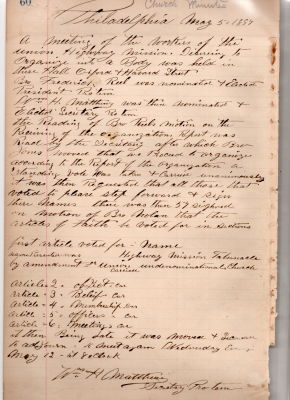 60
Church Minutes
Philadelphia May 5th 1887
A Meeting of the Workers of the
Union Highway Mission Desiring to
Organize into a Body was held in
there Hall Oxford & Howard Street
Bro Frederick was nominated & Elected
President Protem
Wm H Matthias was then nominated &
Elected Secretary Protem
the Reading of Bro motion on the
Receiving of the organizations Report was
Read by the Secretary after which Bro
moved that we Proceed to organize
according to the Report of the Organization. A
Standing Vote Was taken & Carried unanimously
it was then Requested that all those that
voted to please step forward & sign
here names there was 37 signed
on motion of Bro Nolan that the
articles of Faith be voted for in sections
first article voted for - Name
Highway Mission Tabernacle
by amendment undenominational Church
Carried
Article 2 - object - car
Article - 3 - Belief - car
Article - 4 - Membership car
Article - 5 - officers - car
Article - 6 - Meetings car
it then Being Late it was Moved &
to adjourn & meet again Wednesday Eve
May 12 - at 8 o'clock
Wm H Matthias
Secretary Protem